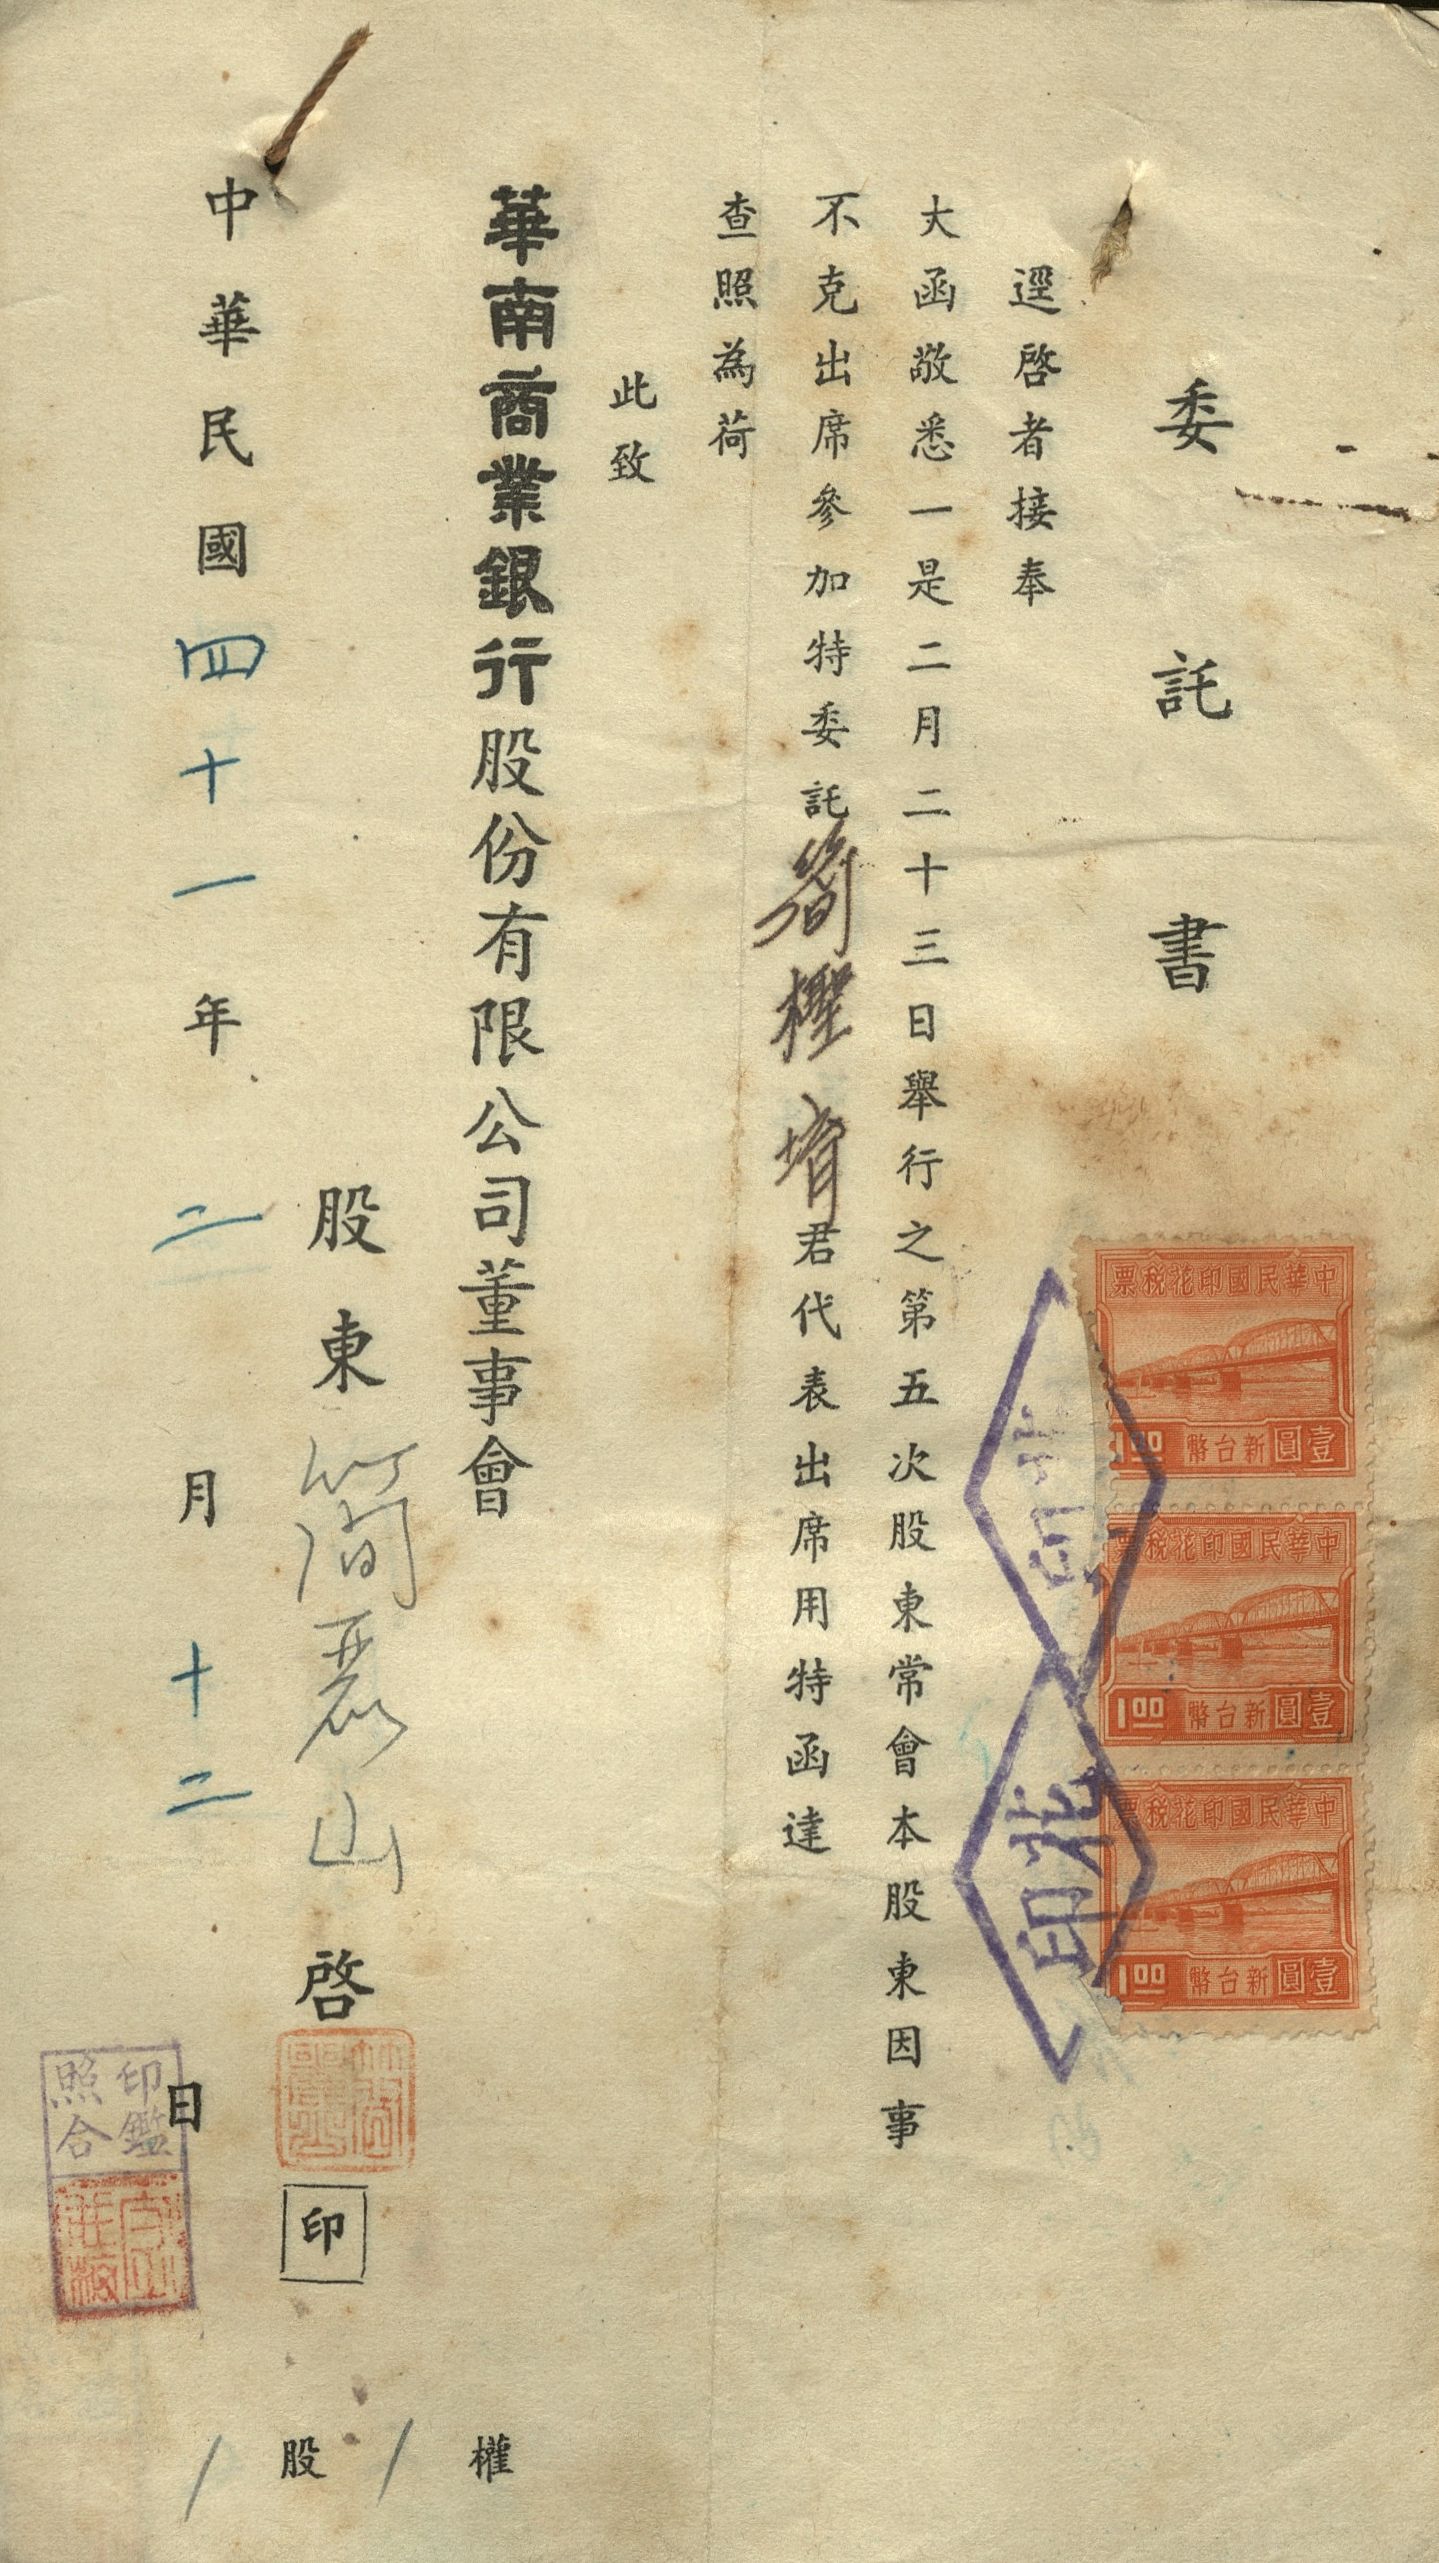 委託書
逕啓者接奉
大函敬悉一是二月二十三日舉行之第五次股東常會本股東因事
不克出席參加特委託簡檉堉君代表出席用特函達
查照為荷
此致
華南商業銀行股份有限公司董事會
股東簡麗山啓
印
中華民國四十一年二月十二日
1股1權
中華民國印花稅票
壹圓新台幣1.00
中華民國印花稅票
壹圓新台幣1.00
中華民國印花稅票
壹圓新台幣1.00
北印
北印
印鑑
照合